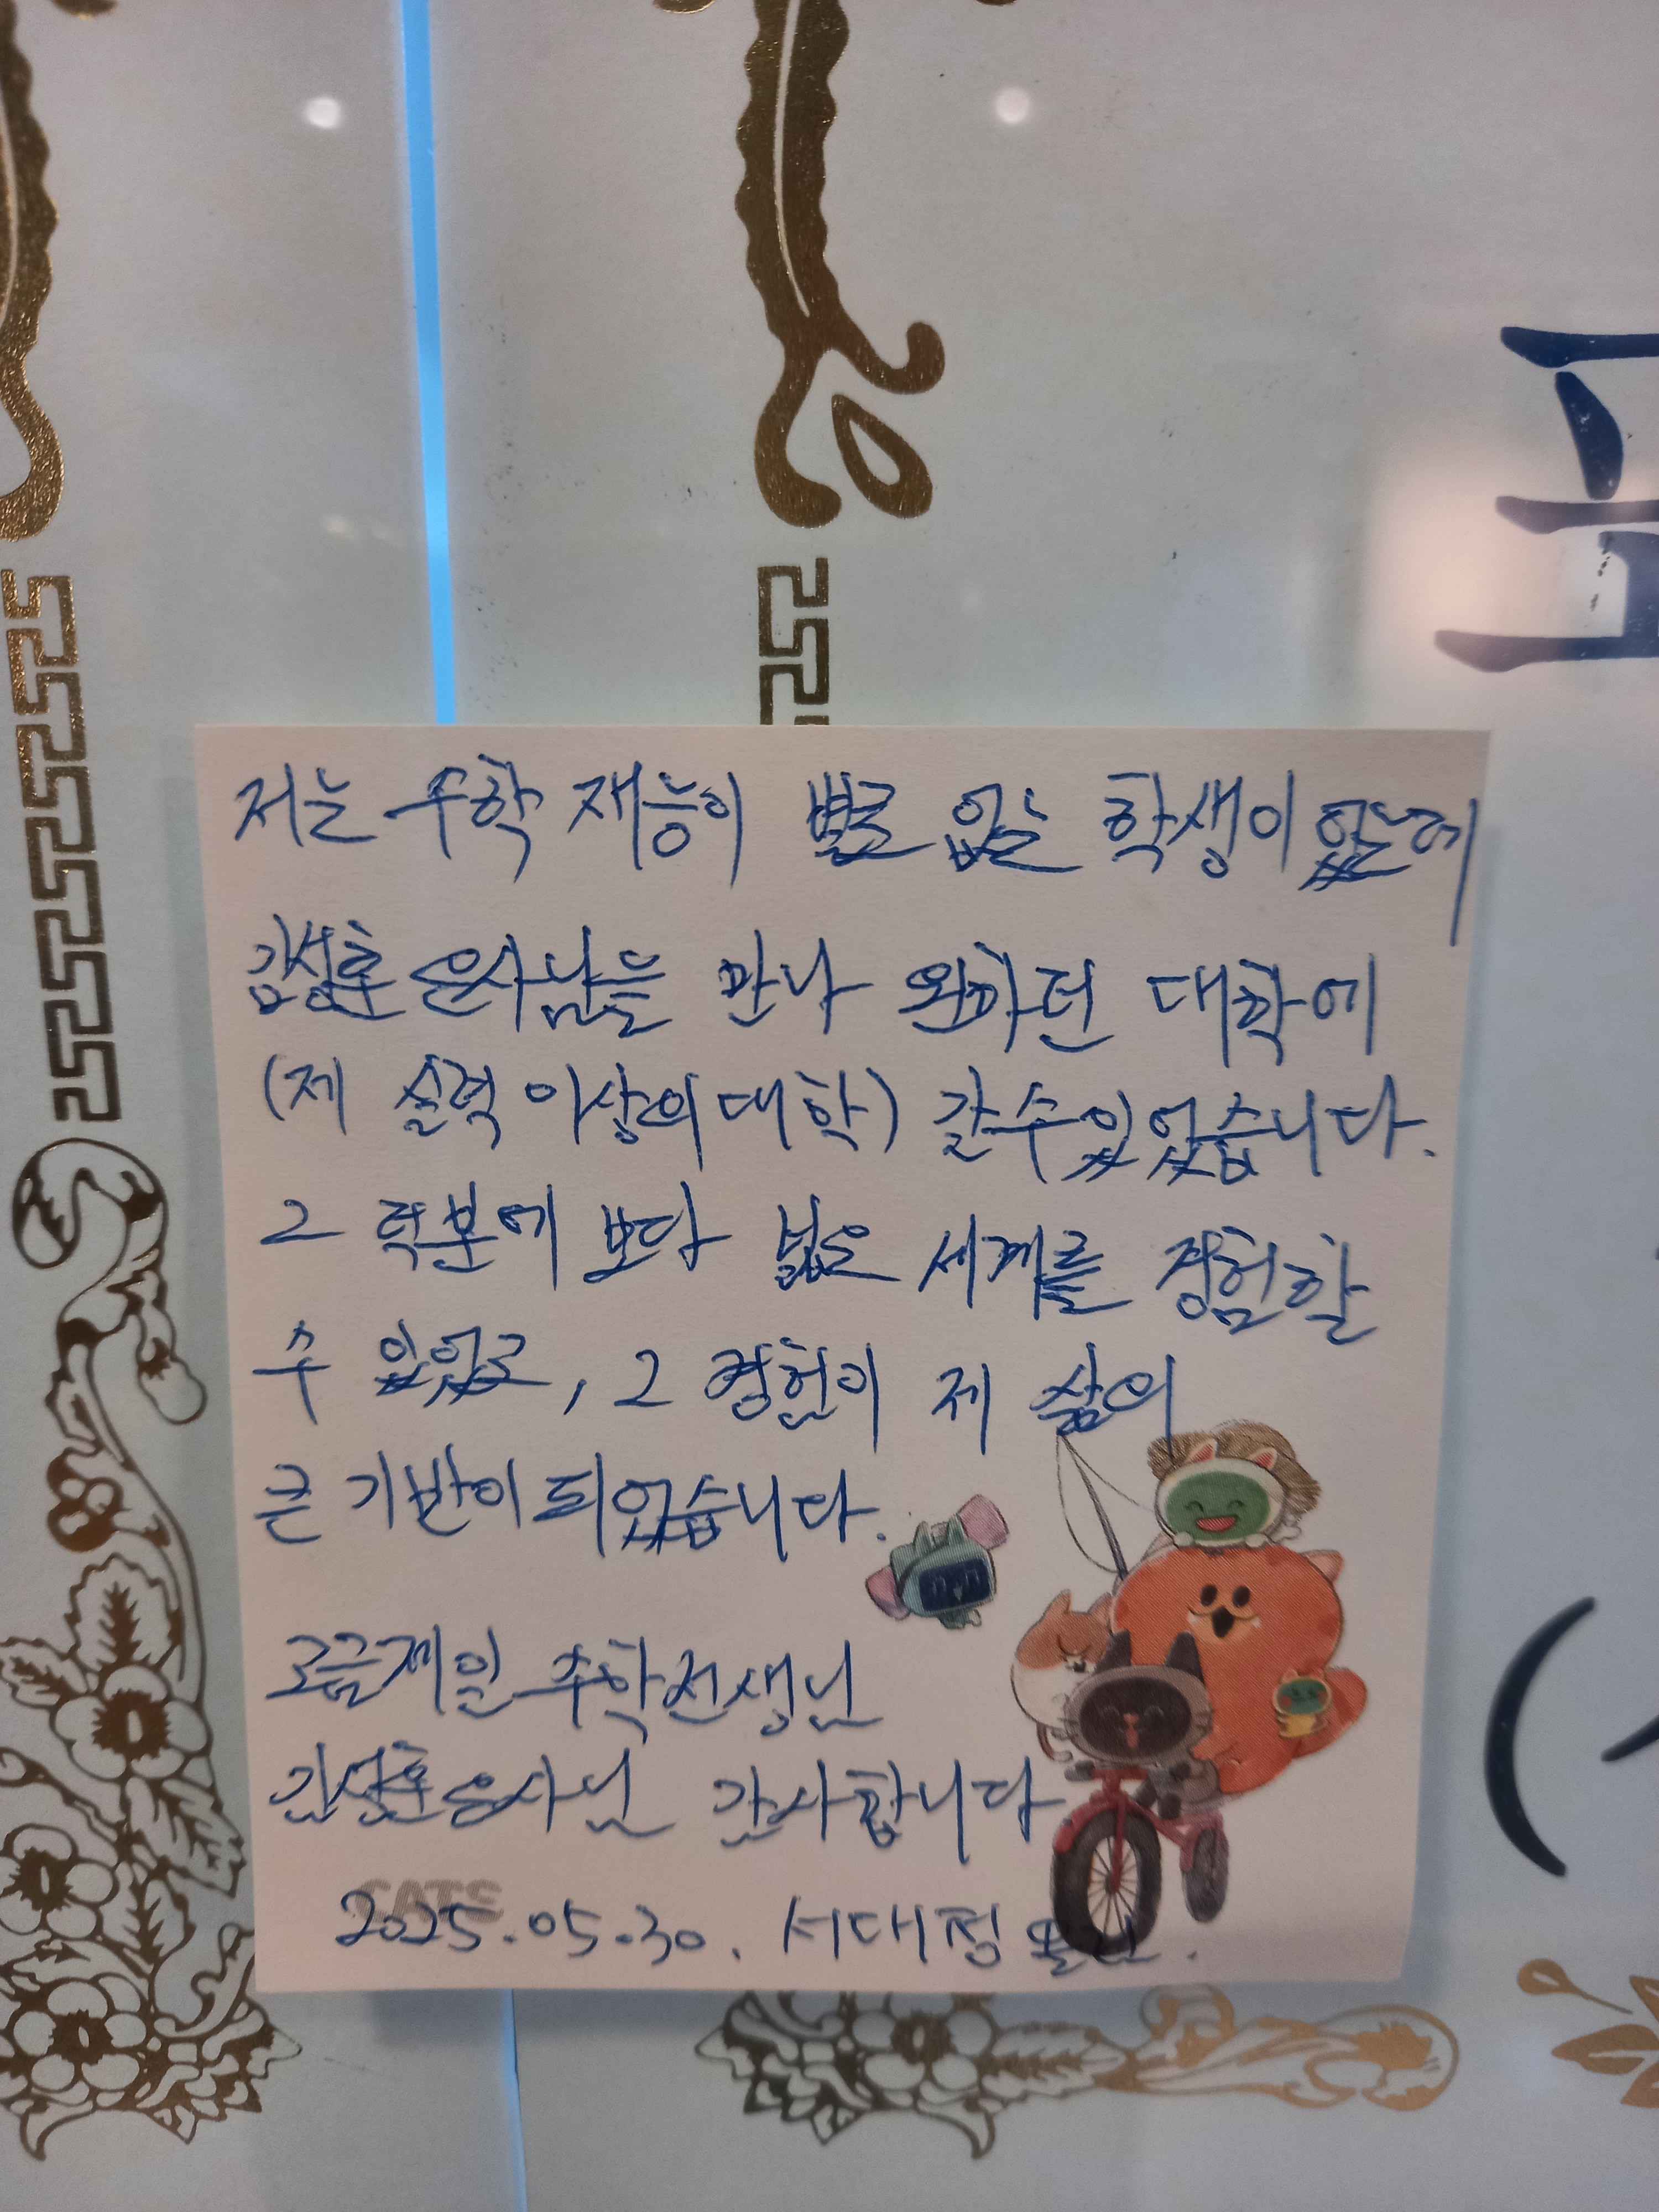 저는 수학 재능이 별로 없는 학생이었는데
김성훈 은사님을 만나 원하던 대학에
(제 실력 이상의 대학) 갈수있었습니다.
그 덕분에 보다 넓은 세계를 경험할
수 있었고, 그 경험이 제 삶의
큰 기반이 되었습니다.
수학선생님
김성훈은사님 감사합니다
CATS
2025.05.30. 서대정